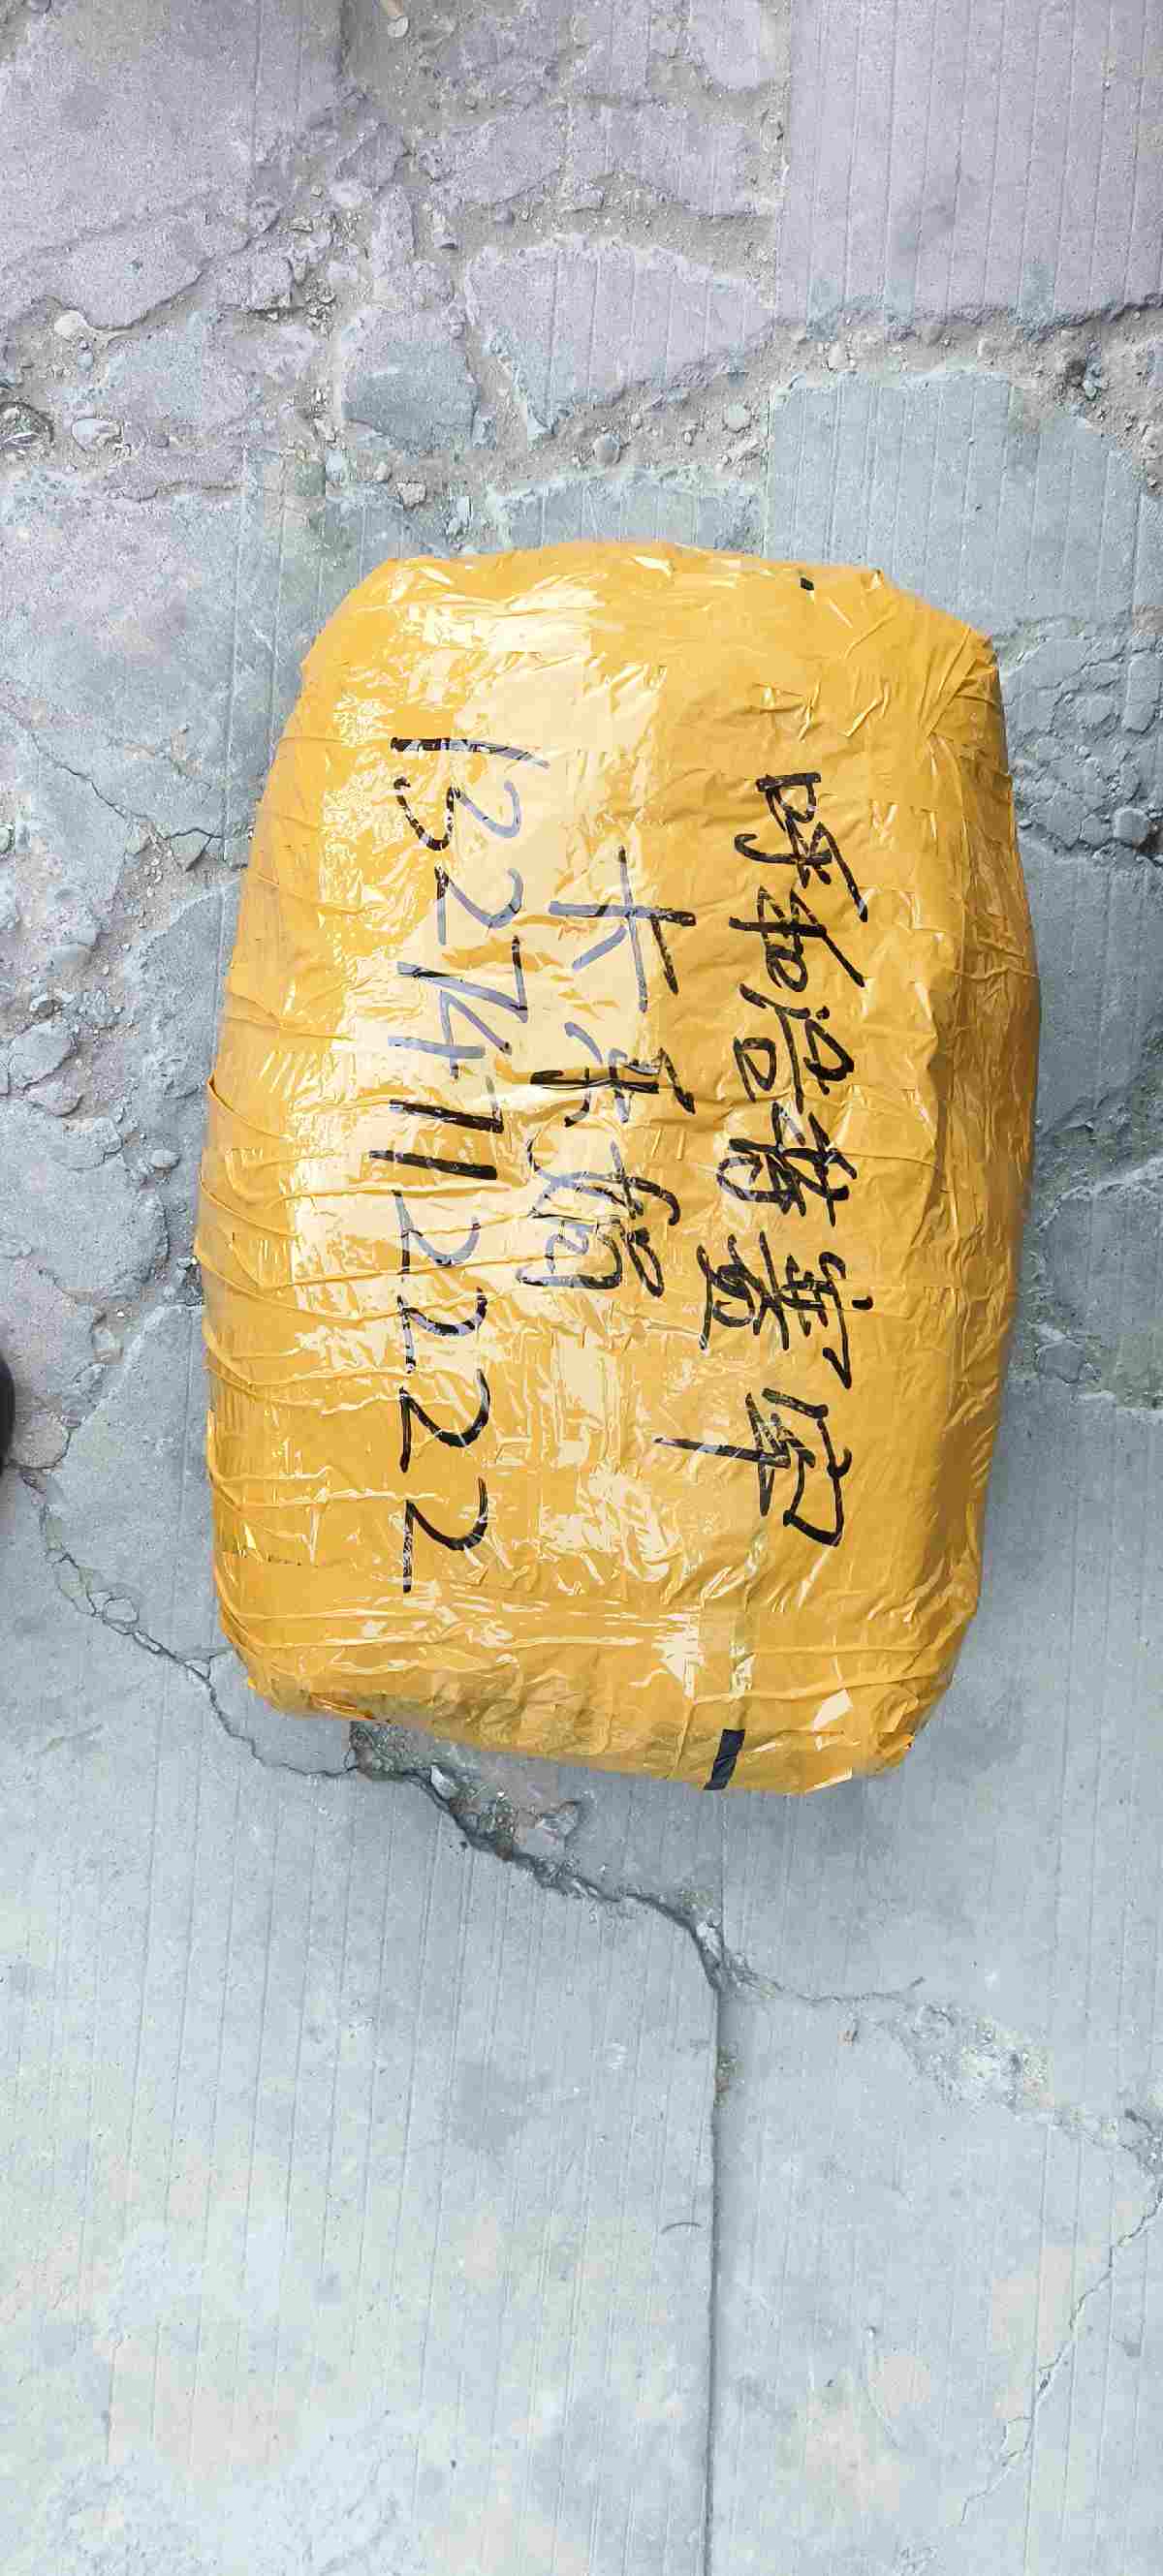 呼和浩特赛罕
13274112222